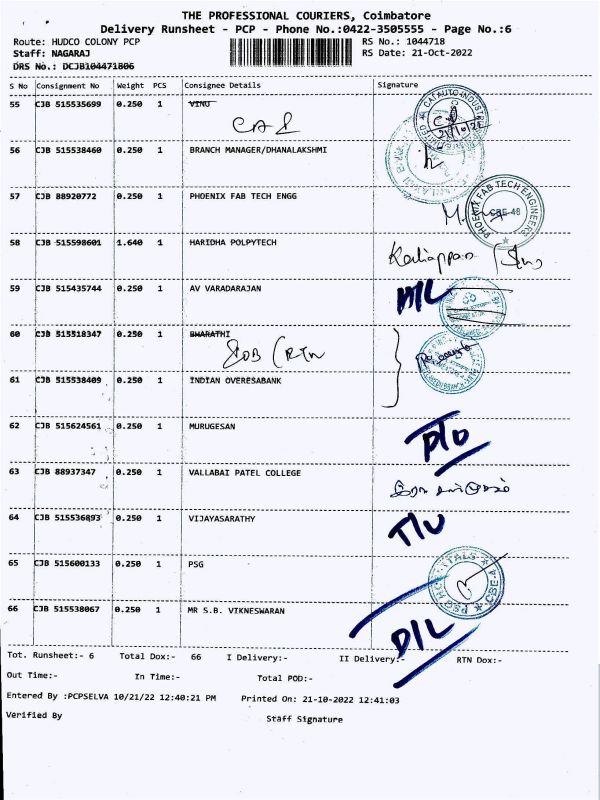 THE PROFESSIONAL COURIERS, Coimbatore
Delivery Runsheet - PCP - Phone No.:0422-3505555 - Page No.:6
Route: HUDCO COLONY PCP RS No.: 1044718
Staff: NAGARAJ RS Date: 21-Oct-2022
DRS No.: DCJB104471806
S No Consignment No Weight PCS Consignee Details Signature
55 CJB 515535699 0.250 1 VINU
56 CJB 515538460 0.250 1 BRANCH MANAGER/DHANALAKSHMI
57 CJB 88920772 0.250 1 PHOENIX FAB TECH ENGG
PHOENIX FAB TECH ENGINEERS CBE-48
58 CJB 515598601 1.640 1 HARIDHA POLPYTECH
59 CJB 515435744 0.250 1 AV VARADARAJAN
D/L
60 CJB 515518347 0.250 1 BHARATHI
61 CJB 515538409 0.250 1 INDIAN OVERESABANK
62 CJB 515624561 0.250 1 MURUGESAN
63 CJB 88937347 0.250 1 VALLABAI PATEL COLLEGE
64 CJB 515536893 0.250 1 VIJAYASARATHY
65 CJB 515600133 0.250 1 PSG
PSG HOSPITALS CBE-4
66 CJB 515538067 0.250 1 MR S.B. VIKNESWARAN
D/L
Tot. Runsheet:- 6 Total Dox:- 66 I Delivery:- II Delivery:- RTN Dox:-
Out Time:- In Time:- Total POD:-
Entered By :PCPSELVA 10/21/22 12:40:21 PM Printed On: 21-10-2022 12:41:03
Verified By Staff Signature